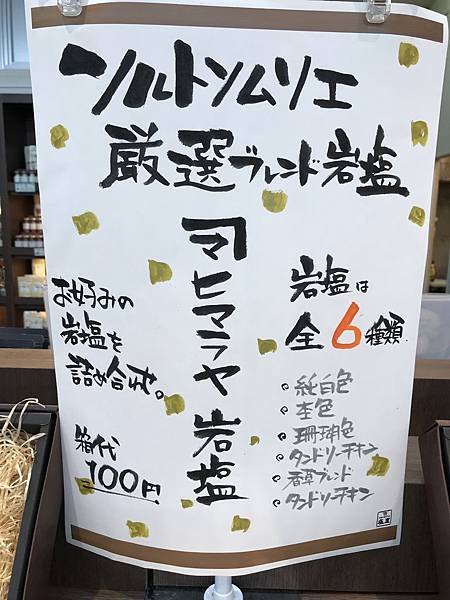 ソルトソムリエ
厳選ブレンド岩塩
マ ヒマラヤ岩塩
お好みの
岩塩を
詰め合せ。
箱代
100円
岩塩は
全6種類
純白色
杏色
珊瑚色
タンドリーチキン
香草ブレンド
タンドリーチキン